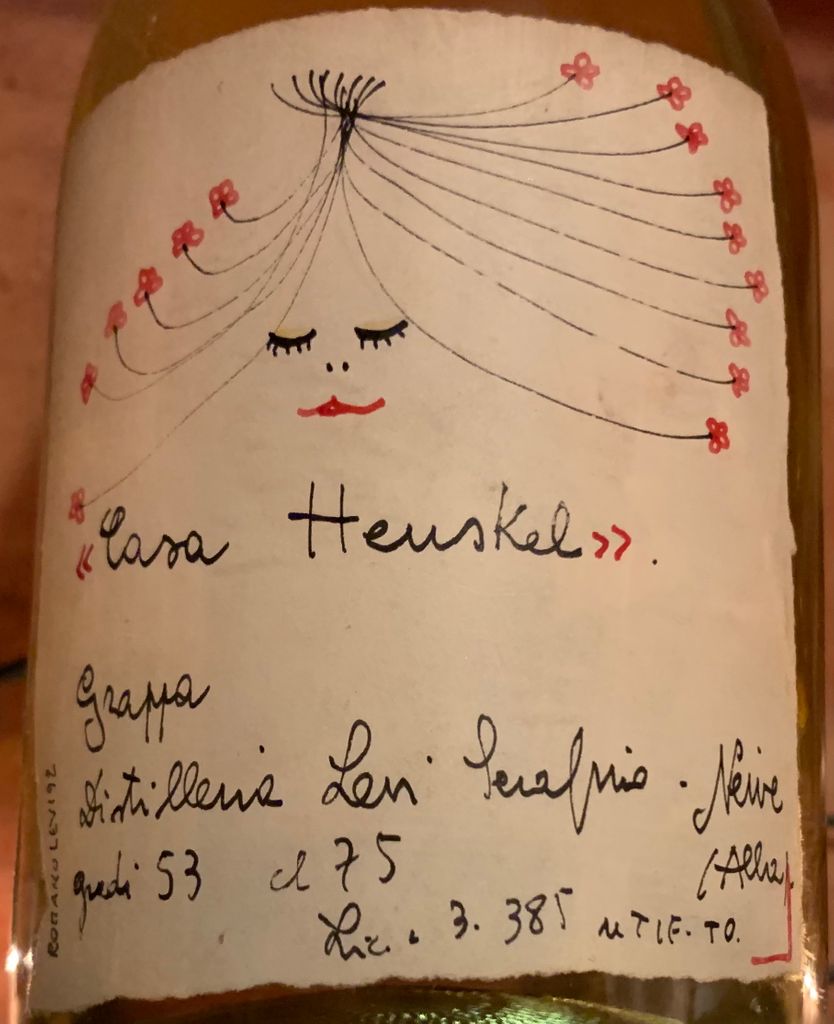 «Casa Henskel».
Grappa
Distilleria Levi Serafino. Neive
gradi 53 cl 75 (Alba)
Lic. 3.385 UTIF. TO.
ROMANO LEVI 92